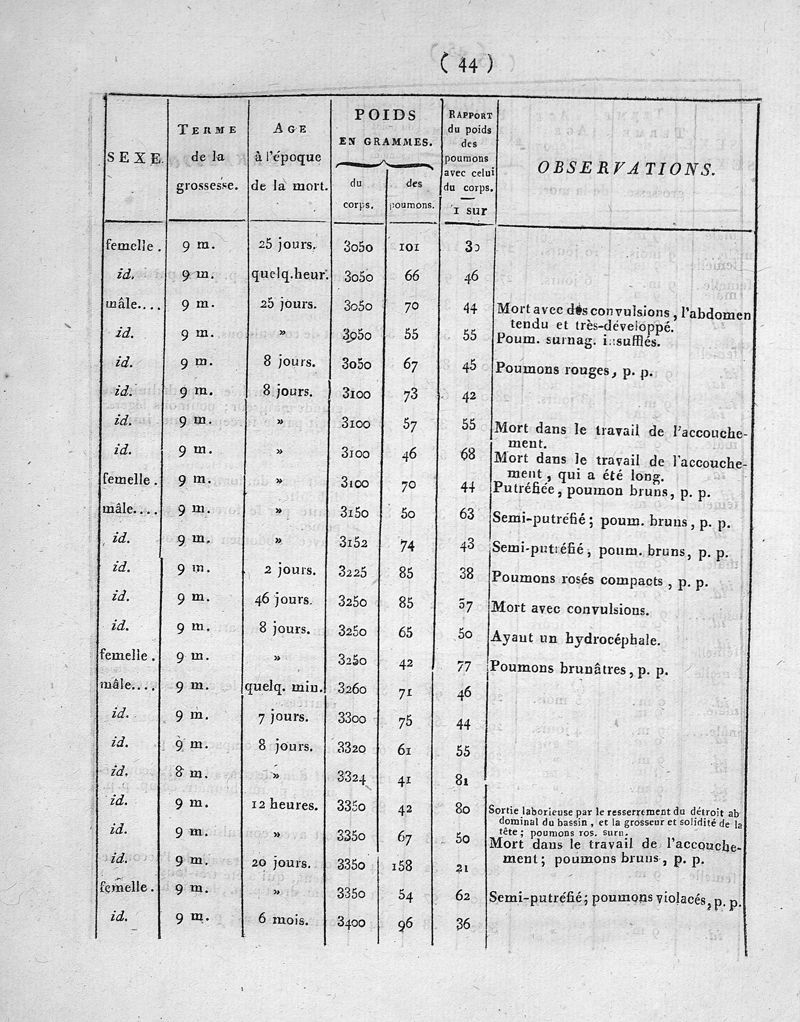 ( 44 )
SEXE.
TERME
de la
grossesse.
AGE
à l'époque
de la mort.
POIDS
EN GRAMMES.
du
corps.
des
poumons.
RAPPORT
du poids
des
poumons
avec celui
du corps.
1 sur
OBSERVATIONS.
femelle. 9 m. 25 jours. 3050 101 30
id. 9 m. quelq. heur. 3050 66 46
mâle.... 9 m. 25 jours. 3050 70 44 Mort avec des convulsions, l'abdomen
tendu et très-développé.
id. 9 m. » 3050 55 55 Poum. surnag. insufflés.
id. 9 m. 8 jours. 3050 67 45 Poumons rouges, p. p.
id. 9 m. 8 jours. 3100 73 42
id. 9 m. » 3100 57 55 Mort dans le travail de l'accouche-
ment.
id. 9 m. » 3100 46 68 Mort dans le travail de l'accouche-
ment, qui a été long.
femelle. 9 m. » 3100 70 44 Putréfiée, poumon bruns, p. p.
mâle.... 9 m. » 3150 50 63 Semi-putréfié; poum. bruns, p. p.
id. 9 m. » 3152 74 43 Semi-putréfié, poum. bruns, p. p.
id. 9 m. 2 jours. 3225 85 38 Poumons rosés compacts, p. p.
id. 9 m. 46 jours. 3250 85 57 Mort avec convulsions.
id. 9 m. 8 jours. 3250 65 50 Ayaut un hydrocéphale.
femelle. 9 m. » 3250 42 77 Poumons brunâtres, p. p.
mâle.... 9 m. quelq. min. 3260 71 46
id. 9 m. 7 jours. 3300 75 44
id. 9 m. 8 jours. 3320 61 55
id. 8 m. » 3324 41 81
id. 9 m. 12 heures. 3350 42 80 Sortie laborieuse par le resserrement du détroit ab
dominal du bassin, et la grosseur et solidité de la
tête; poumons ros. surn.
id. 9 m. » 3350 67 50 Mort dans le travail de l'accouche-
ment; poumons bruns, p. p.
id. 9 m. 20 jours. 3350 158 21
femelle. 9 m. » 3350 54 62 Semi-putréfié; poumons violacés, p. p.
id. 9 m. 6 mois. 3400 96 36